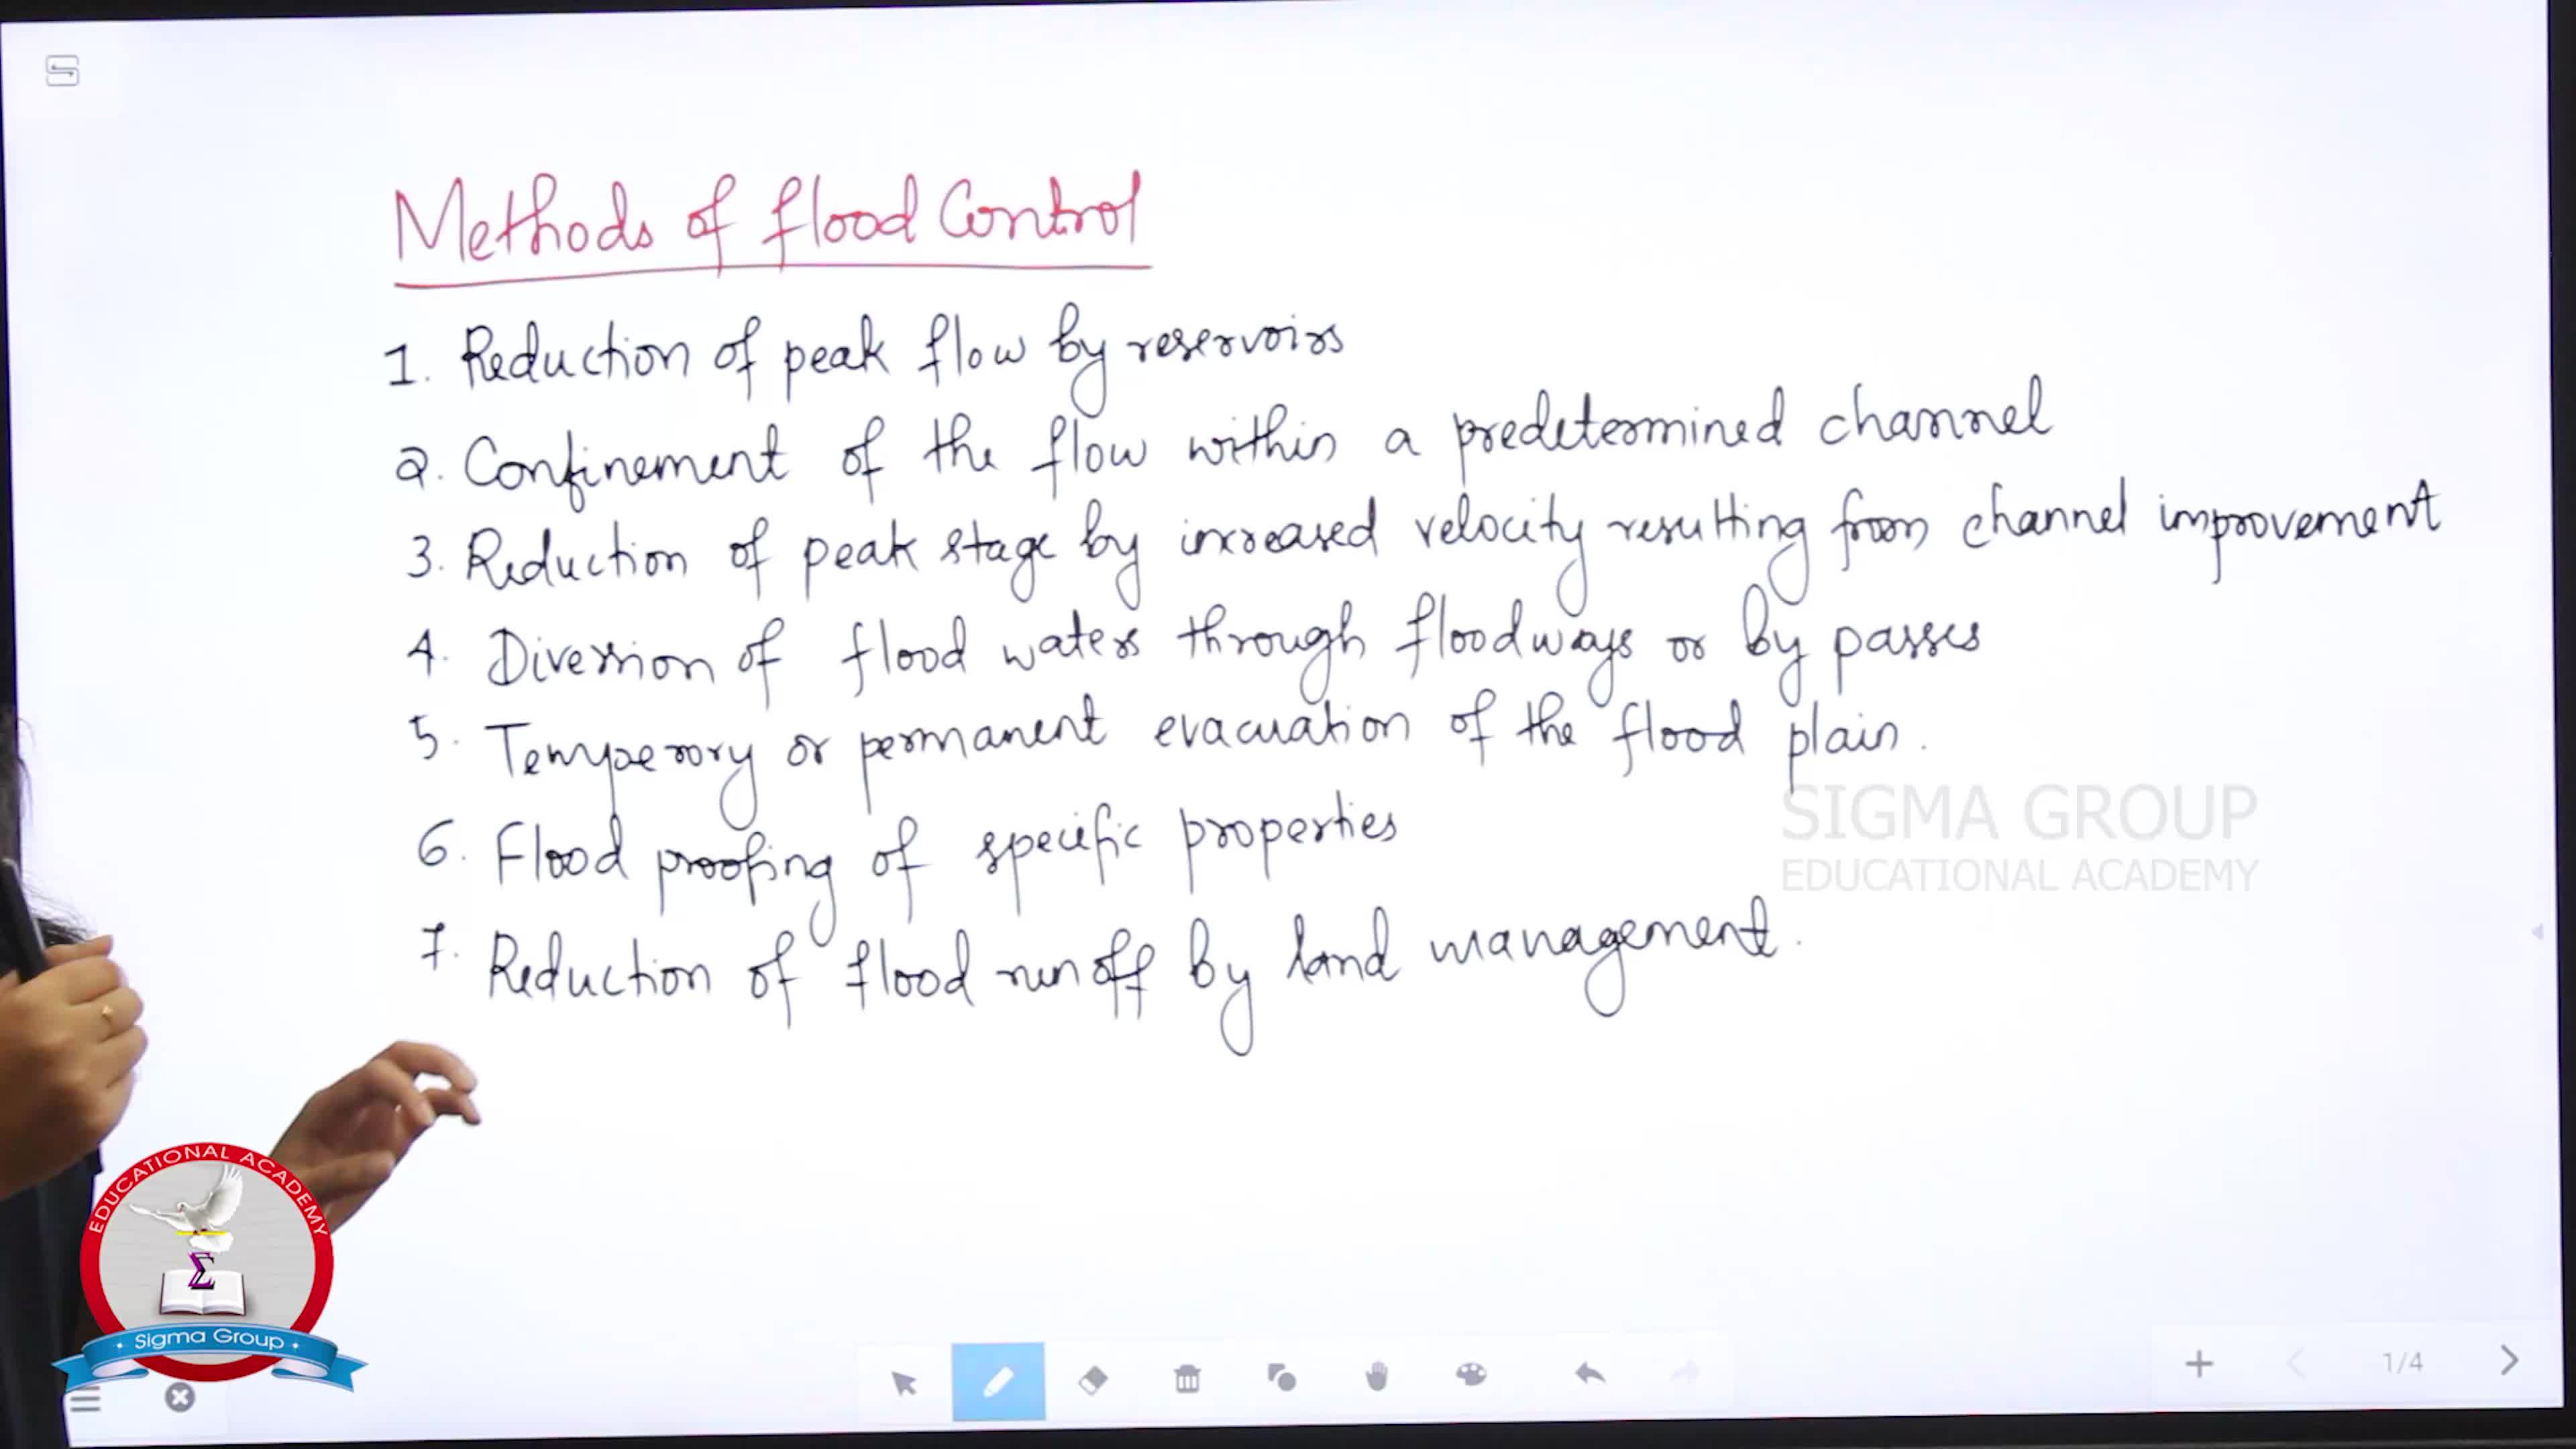 Methods of flood Control
1. Reduction of peak flow by reservoirs
2. Confinement of the flow within a predetermined channel
3. Reduction of peak stage by increased velocity resulting from channel improvement
4. Diversion of flood waters through floodways or by passes
5. Temperory or permanent evacuation of the flood plain.
6. Flood proofing of specific properties
7. Reduction of flood runoff by land management.
SIGMA GROUP
EDUCATIONAL ACADEMY
EDUCATIONAL ACADEMY
Σ
Sigma Group
1/4